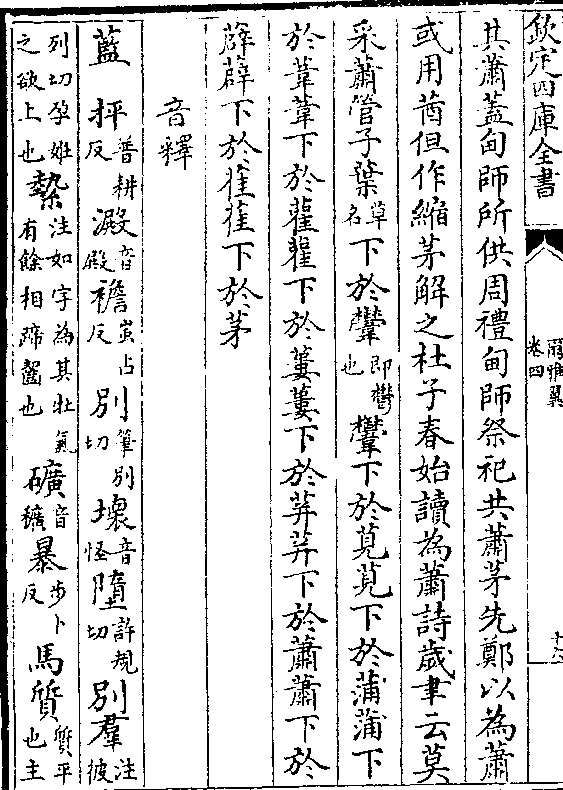 欽定四庫全書
爾雅翼
卷四
十六
其蕭蓋甸師所供周禮甸師祭祀共蕭茅先鄭以為蕭
或用茜但作縮茅解之杜子春始讀為蕭詩歲聿云莫
采蕭管子葉草名下於𣡸即鬱也𣡸下於莧莧下於蒲蒲下
於葦葦下於雚雚下於蔞蔞下於荓荓下於蕭蕭下於
薜薜下於萑萑下於茅
音釋
藍 抨普耕反 澱音殿 襜蚩占反 別筆別切 壞音怪 墮許規切 別羣注彼
列切孕妊之欲上也 縶注如字為其牡氣有餘相蹄齧也 礦音穬 暴步卜反 馬質質平也主